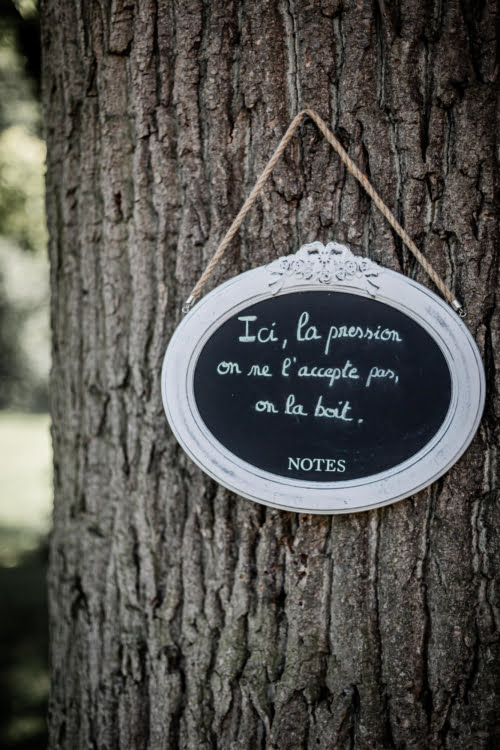 Ici, la pression
on ne l'accepte pas,
on la boit.
NOTES